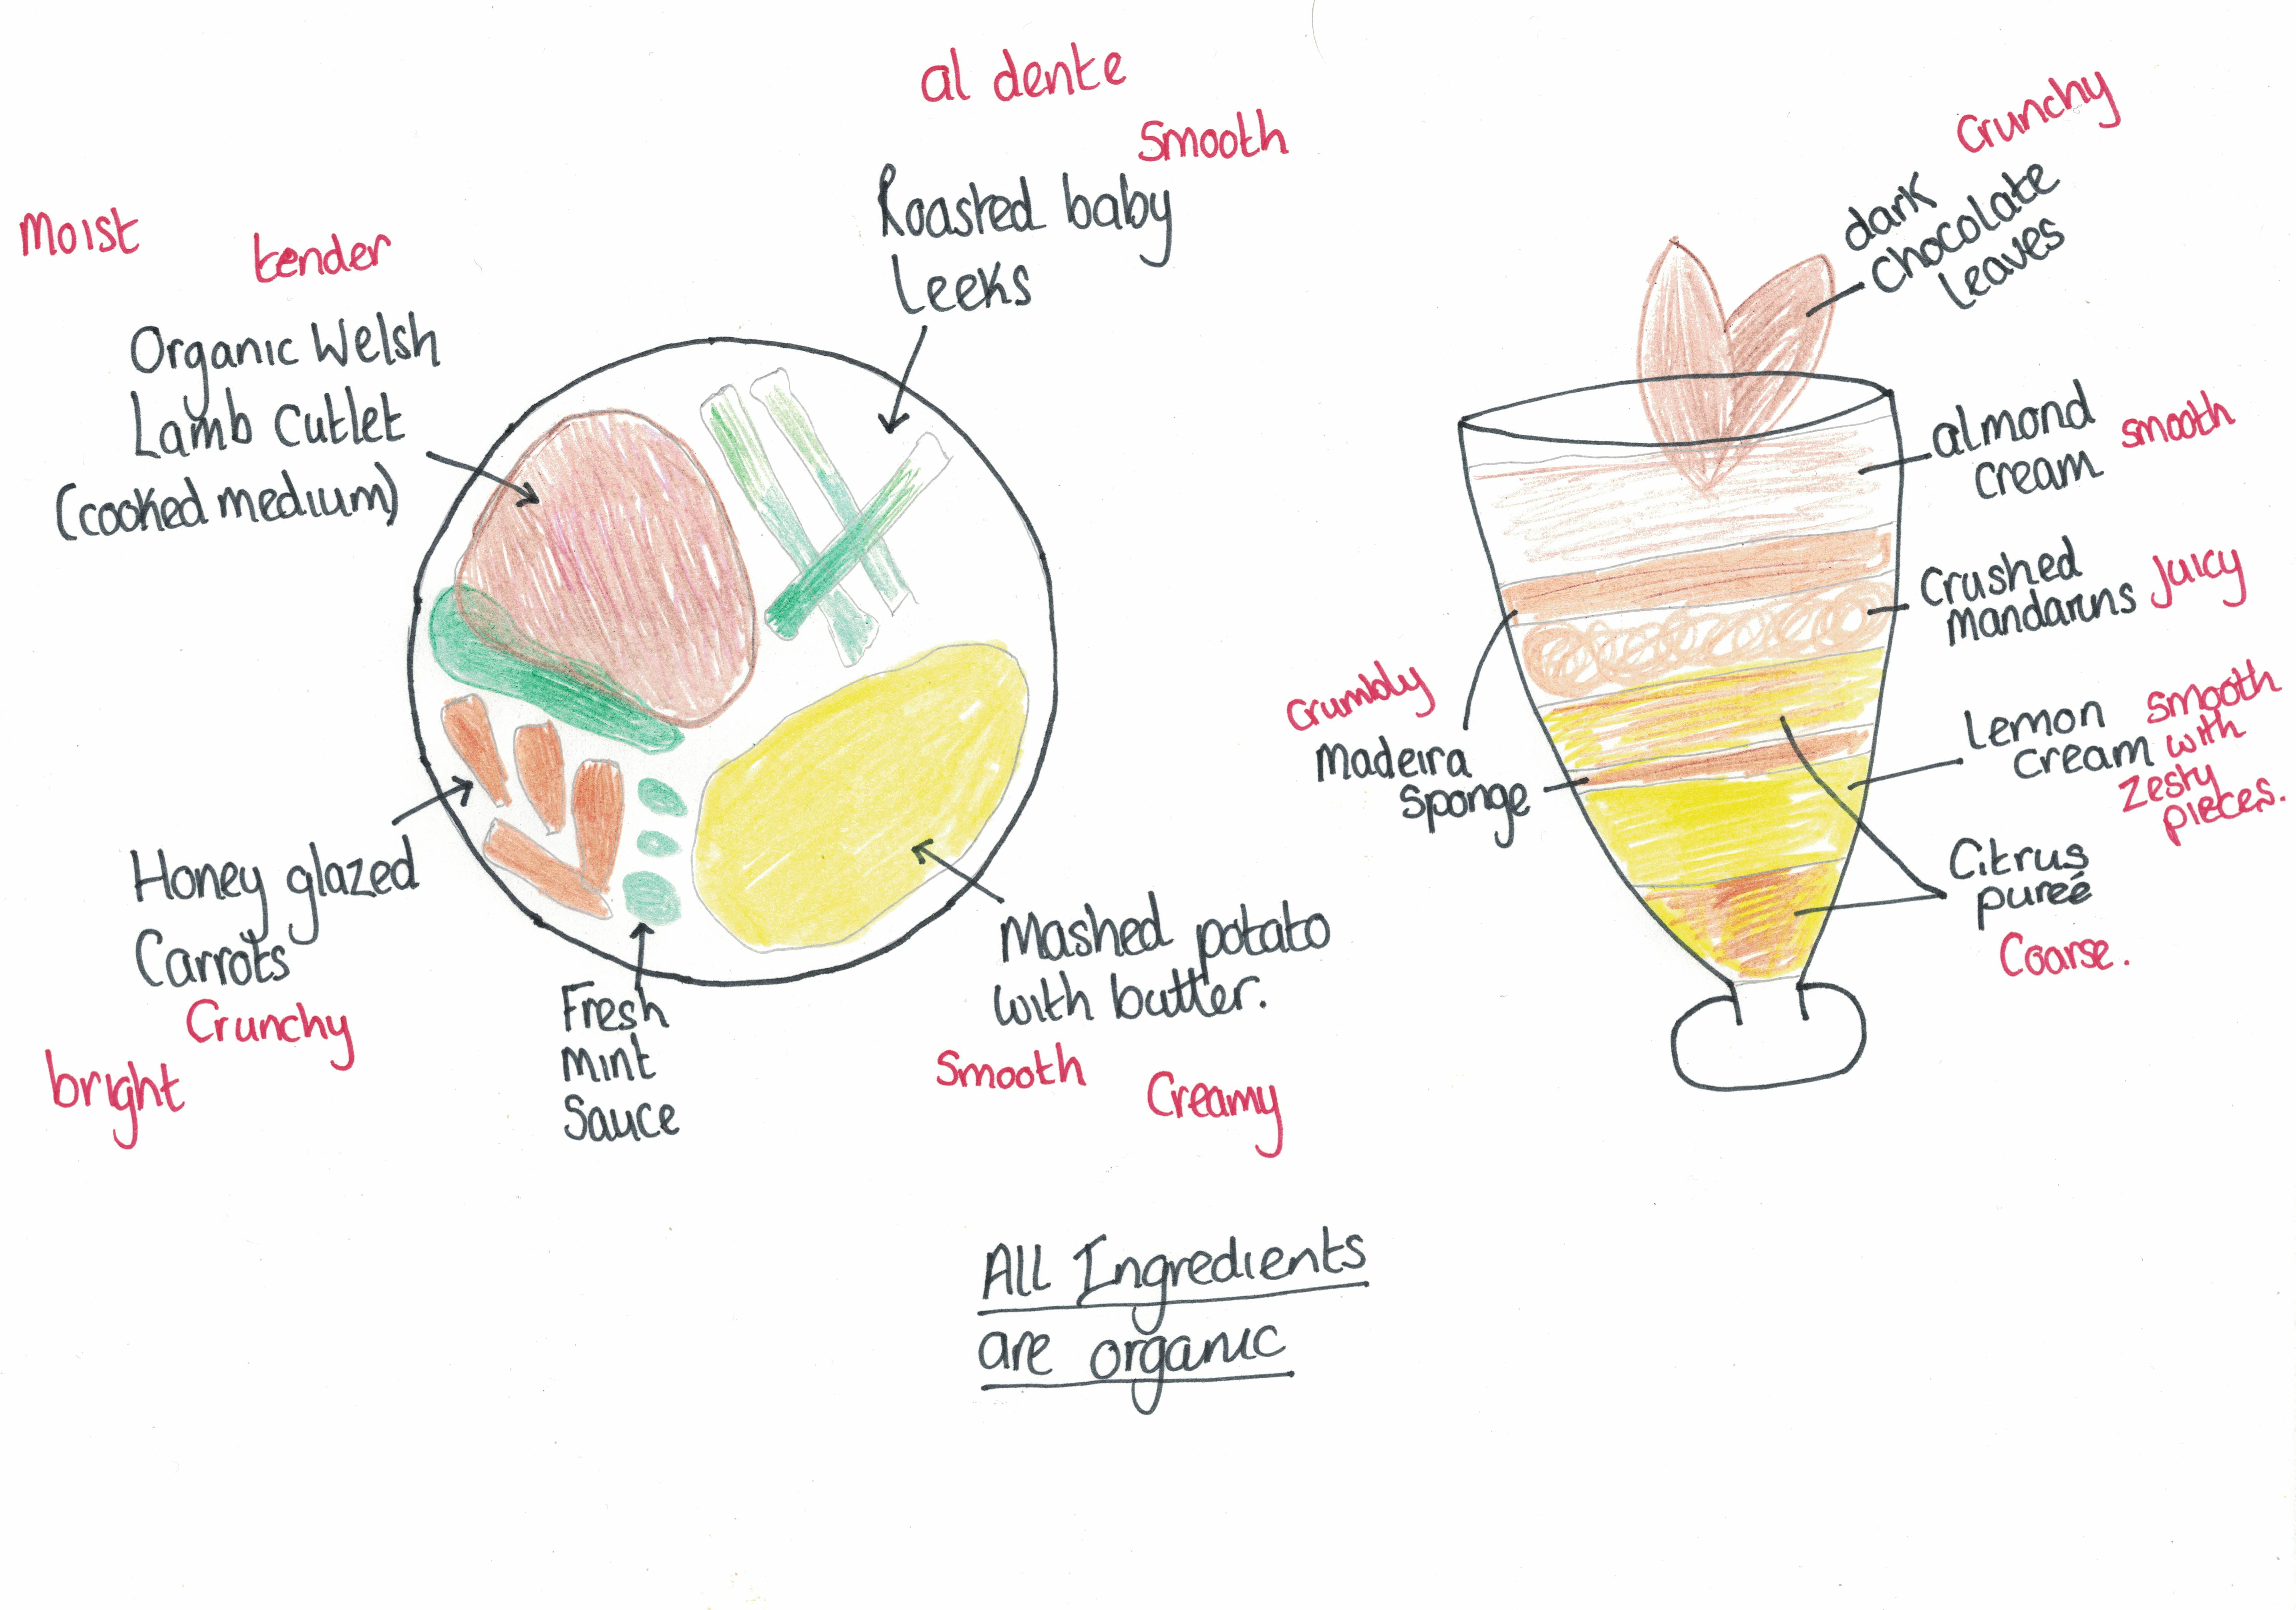 al dente
Smooth
Roasted baby
Leeks
Moist
tender
Organic Welsh
Lamb Cutlet
(cooked medium)
Honey glazed
Carrots
Crunchy
bright
Fresh
Mint
Sauce
Mashed potato
with butter.
Smooth
Creamy
Crunchy
dark
chocolate
leaves
almond smooth
cream
Crushed Juicy
Mandarins
Crumbly
Madeira
Sponge
Lemon smooth
Cream with
zesty
pieces.
Citrus
pureé
Coarse.
All Ingredients
are organic